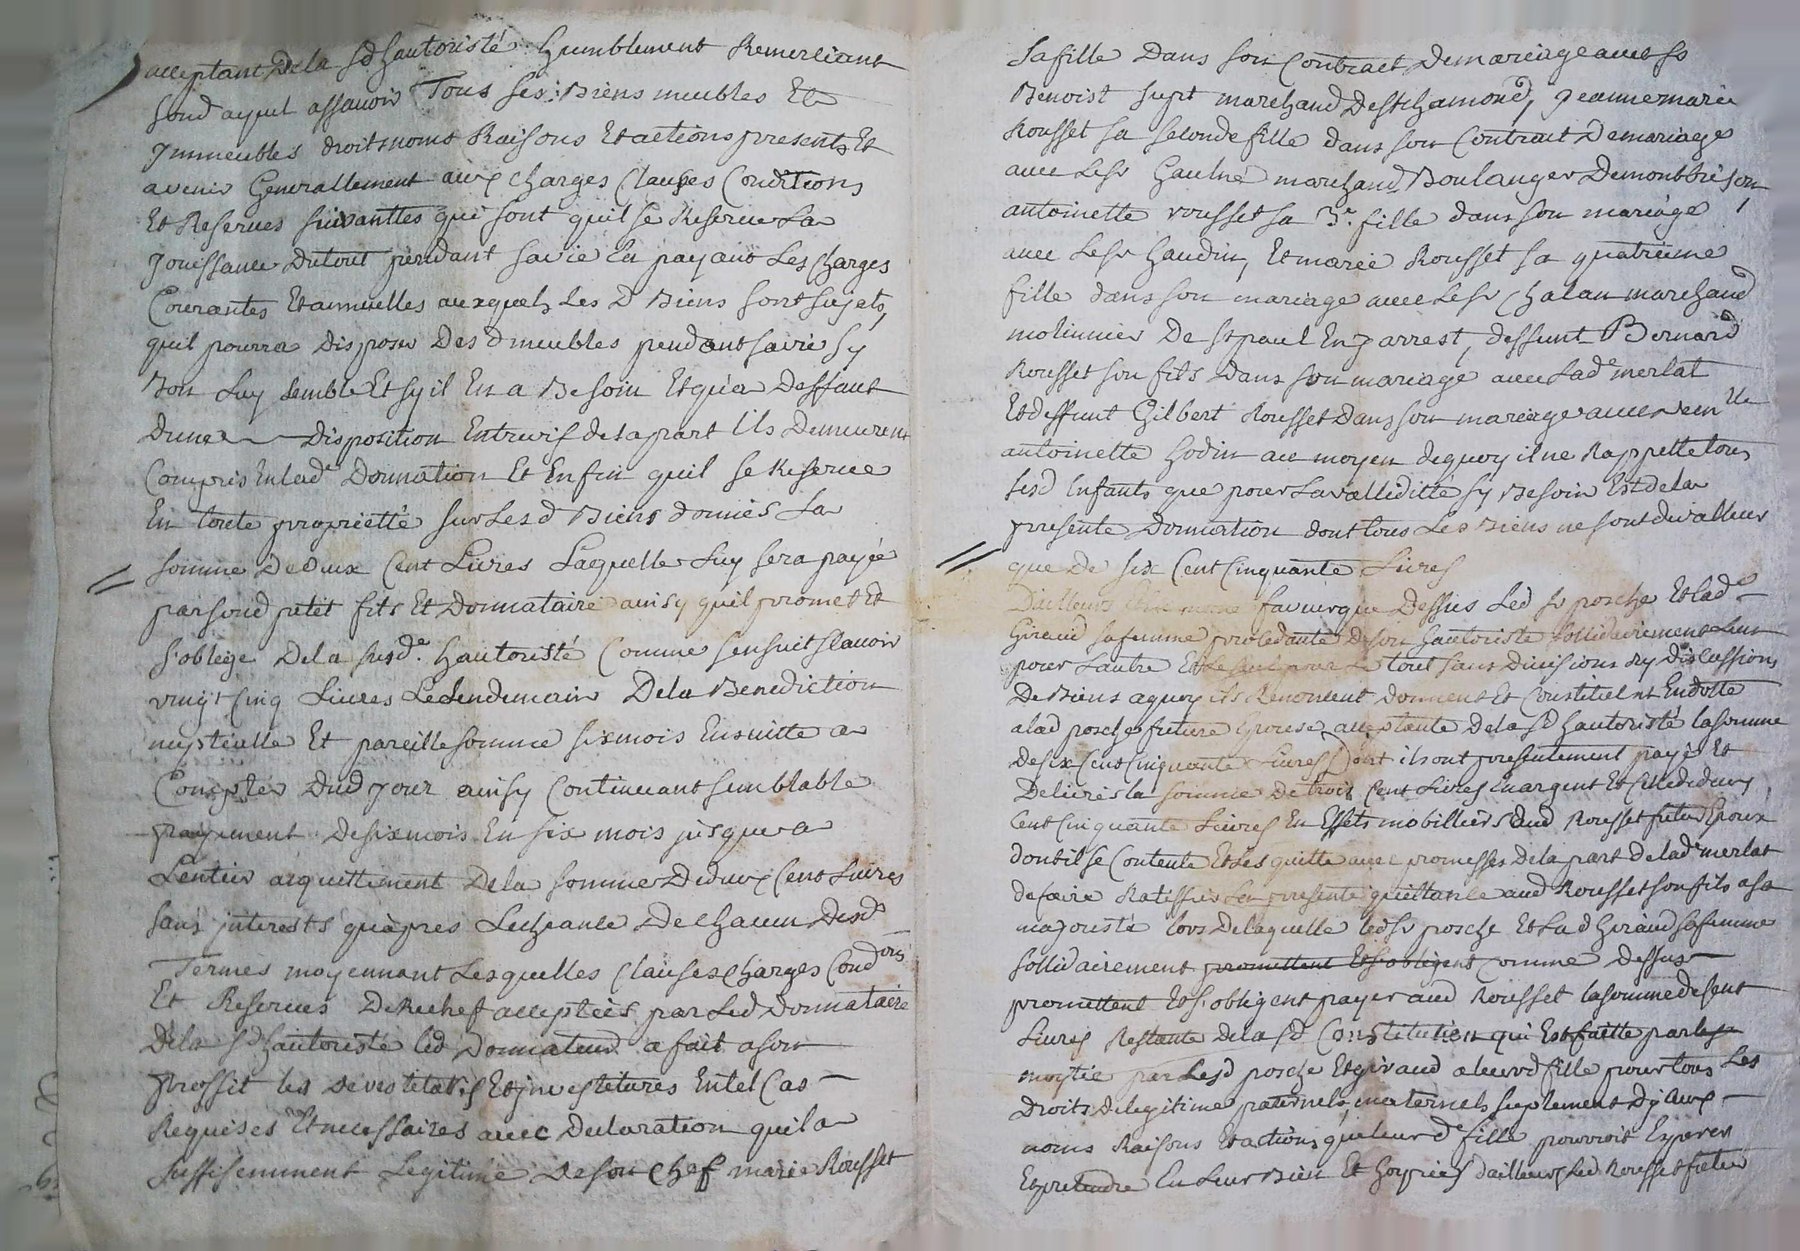 acceptant De la sd hautoristé humblement Remerciant
sond ayeul assavoir Tous ses Biens meubles Et
jmmeubles droits noms Raisons Et actions presents Et
avenir Generallement aux charges Clauses Conditions
Et Reserves suivanttes qui sont quil se Reserve La
jouissance Dutout pendant sa vie En payant Les charges
Courantes Et annuelles auxquels Les D Biens sont sujets,
quil pourra Disposer Des d meubles pendant sa vie sy
Bon Luy semble Et sy il En a Besoin Et qua deffaut
dune Disposition Entrevif de sa part ils Demeurent
Compris En lad.e Donnation Et Enfin quil se Reserve
En toute proprietté sur Les d Biens donnés La
somme De Deux Cent Livres Laquelle Luy sera payée
par sond petit fils Et Donnataire ainsy quil promet Et
s'oblige De la susd.e hautoristé Comme sensuit scavoir
vingt Cinq Livres Le Lendemain De la Benediction
nuptialle Et pareille somme six mois Ensuitte a
Compter Dud jour ainsy Continuant semblable
payement De six mois En six mois jusqua
Lentier acquittement De la somme De deux Cent Livres
sans jnterests qu'après Lecheance De chacun Desd
Termes moyennant Lesquelles Clauses charges Condons
Et Reserves De Rechef acceptées par Led Donnataire
De la sd hautoristé led Donnateur a fait a son
proffit les devestitures Et jnvestitures En tel Cas
Requises Et necessaires avec Declaration quil a
suffisemment Legitimé De son chef marie Rousset
sa fille Dans son Contract De mariage avec sr
Benoist supt marchand De St chamond, jeanne marie
Rousset sa seconde fille dans son Contract De mariage
avec Le sr Gaulné marchand Boulanger De montbrison,
antoinette rousset sa 3.e fille dans son mariage
avec Le sr haudin, Et marie Rousset sa quatrieme
fille dans son mariage avec Le sr chalan marchand
molinnier De st paul En jarrest, deffunt Bernard
Rousset son fils Dans son mariage avec Lad.e merlat
Et deffunt Gilbert Rousset Dans son mariage avec
antoinette hodin au moyen dequoy il ne Rappelle tous
sesd Enfants que pour La valliditté sy Besoin Est de la
presente Donnation dont tous Les Biens ne sont de valleur
que De six Cent Cinquante Livres
D'ailleurs Et En meme faveur que Dessus Led sr posche Et lad.e
Giraud sa femme procedante De son hautoristé sollidairement Lun
pour Lautre Et Le seul pour Le tout sans divisions ny Discussions
De Biens aquoy ils Renoncent donnent Et Constituent En dotte
a lad posche future Epouse acceptante De la sd hautoristé la somme
De six Cent Cinquante Livres Dont ils ont presentement payé Et
Delivré la somme De trois Cent Livres En argent Et Celle de deux
Cent Cinquante Livres En Effets mobilliers aud Rousset futur Epoux
dont il se Contente Et Les quitte avec promesses De la part de lad.e merlat
de faire Ratiffier La presente quittance aud Rousset son fils a sa
majorité lors De laquelle led sr posche Et La d Giraud sa femme
sollidairement promettent Et s'obligent Comme dessus
promettent Et s'obligent payer aud Rousset la somme de Cent
Livres Restante De la sd Constitution qui Est faitte par
moytié par Lesd posche Et giraud a leurd fille pour tous Les
Droits De legitime paternels, maternels suplement Dyceux
noms Raisons Et actions que leur d.e fille pourroit Esperer
Et pretendre En Leur Bien Et hoyries d'ailleurs Led Rousset futur